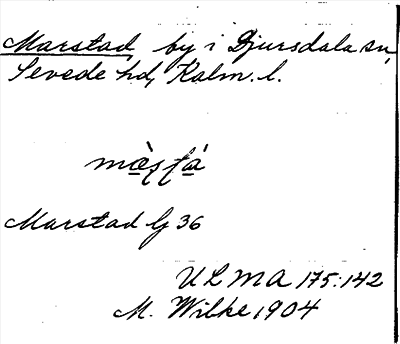 Marstad by i Djursdala sn,
Sevede hd, Kalm. l.
mæ̀ʂʈá
Marstad Gj 36
ULMA 175:142
M. Wilke 1904